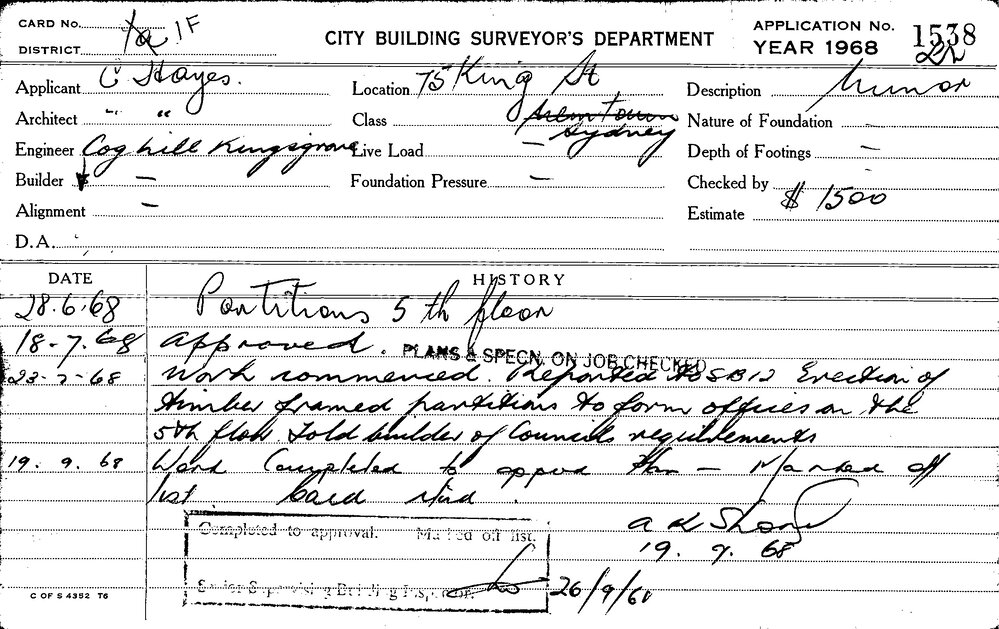 CARD No. 1F
DISTRICT
CITY BUILDING SURVEYOR'S DEPARTMENT
APPLICATION No. 1538
YEAR 1968
Applicant C Hayes.
Location 75 King St
Description Minor
Architect " "
Class
Sydney
Nature of Foundation –
Engineer Coghill Kingsgrove
Live Load –
Depth of Footings –
Builder –
Foundation Pressure –
Checked by
Alignment –
Estimate $ 1500
D.A.
DATE
HISTORY
28.6.68 Partitions 5th floor
18-7.68 Approved. PLANS & SPECN. ON JOB CHECKED
23-7-68 Work commenced. Reported to SB12 Erection of
timber framed partitions to form offices on the
5th floor Told builder of Councils requirements
19.9.68 Work Completed to approd plan – Marked off
list. Card
19.9.68
Completed to approval. Marked off list.
Senior Supervising Building Inspector.
26/9/68
C OF S 4352 T6